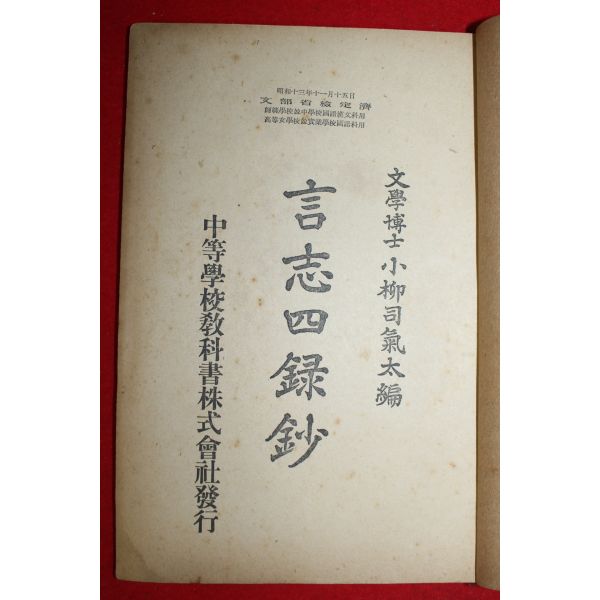 昭和十三年十一月十五日
文部省檢定濟
師範學校竝中學校國語漢文科用
高等女學校竝實業學校國語科用
文學博士 小柳司氣太編
言志四錄鈔
中等學校敎科書株式會社發行